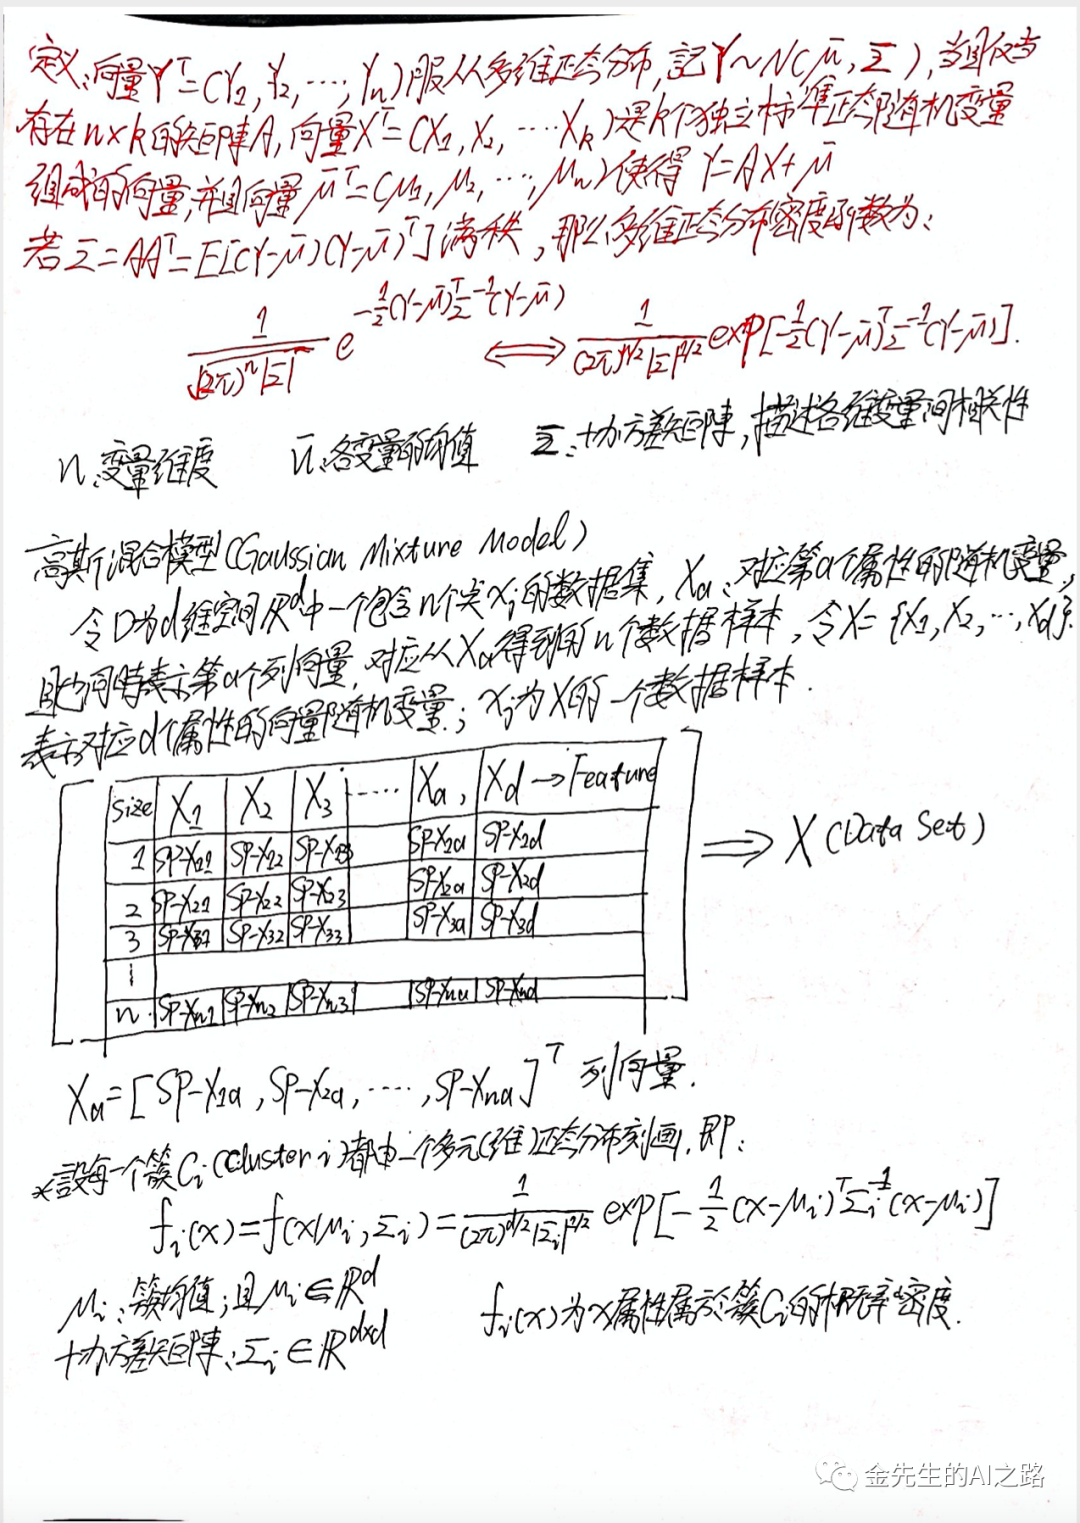 定义:向量Yᵀ=(Y₁,Y₂,…,Yₙ)服从多维正态分布,記Y~N(μ̄,Σ),当且仅当
存在n×k的矩陣A,向量Xᵀ=(X₁,X₂,…Xₖ)是k个独立标準正态随机变量
组成的向量,并且向量μ̄ᵀ=(μ₁,μ₂,…,μₙ)使得 Y=AX+μ̄
若Σ=AAᵀ=E[(Y-μ̄)(Y-μ̄)ᵀ]满秩,那么多维正态分布密度函数为:
1/√((2π)ⁿ|Σ|) e^(-1/2(Y-μ̄)ᵀΣ⁻¹(Y-μ̄)) ⟺ 1/((2π)^(n/2)|Σ|^(1/2)) exp[-1/2(Y-μ̄)ᵀΣ⁻¹(Y-μ̄)].
n:变量维度 μ̄:各变量的均值 Σ:协方差矩陣,描述各维变量间相关性
高斯混合模型(Gaussian Mixture Model)
令D为d维空间ℝᵈ中一个包含n个点xⱼ的数据集,Xₐ:对应第a个属性的随机变量,
且也同時表示第a个列向量,对应从Xₐ得到的n个数据样本,令X={X₁,X₂,…,X_d}
表示对应d个属性的向量随机变量;xⱼ为X的一个数据样本.
Size X₁ X₂ X₃ …… Xₐ, X_d → Feature
1 SP-X₁₁ SP-X₁₂ SP-X₁₃ SP-X₁ₐ SP-X₁d
2 SP-X₂₁ SP-X₂₂ SP-X₂₃ SP-X₂ₐ SP-X₂d
3 SP-X₃₁ SP-X₃₂ SP-X₃₃ SP-X₃ₐ SP-X₃d
⇒ X(Data Set)
n SP-Xₙ₁ SP-Xₙ₂ SP-Xₙ₃ SP-Xₙₐ SP-Xₙd
Xₐ=[SP-X₁ₐ,SP-X₂ₐ,……,SP-Xₙₐ]ᵀ 列向量.
*設每一个簇Cᵢ(cluster i)都由一个多元(维)正态分布刻画,即:
fᵢ(x)=f(x|μᵢ,Σᵢ)=1/((2π)^(d/2)|Σᵢ|^(1/2)) exp[-1/2(x-μᵢ)ᵀΣᵢ⁻¹(x-μᵢ)]
μᵢ:簇均值;且μᵢ∈ℝᵈ fᵢ(x)为x属性属於簇Cᵢ的概率密度.
协方差矩陣:Σᵢ∈ℝ^(d×d)
金先生的AI之路